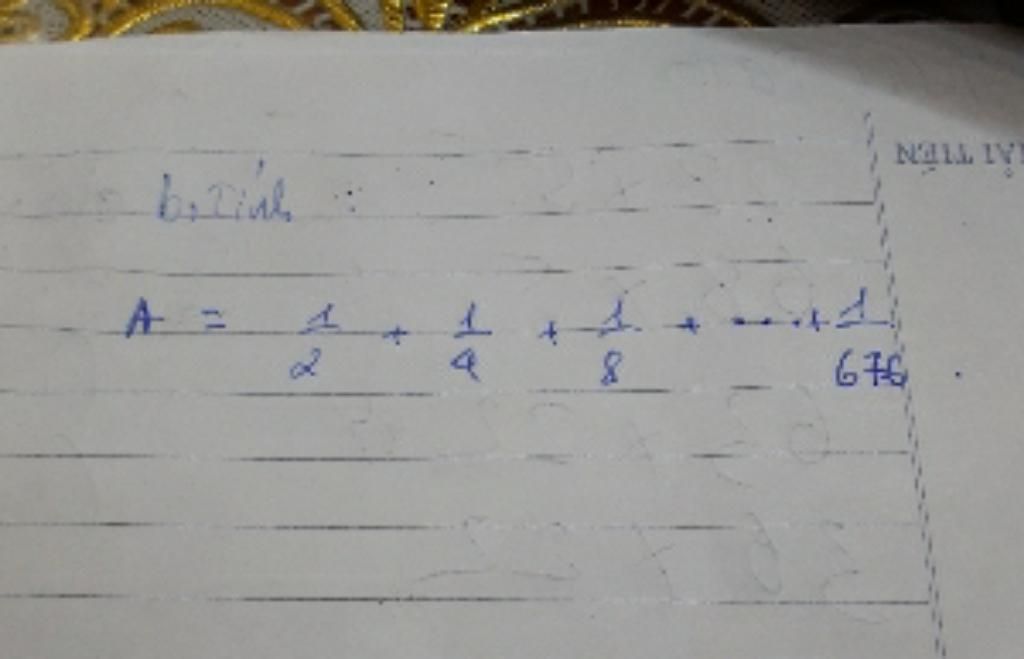 HẢI TIẾN
b, Tính :
A = 1/2 + 1/4 + 1/8 + ..... + 1/676 .